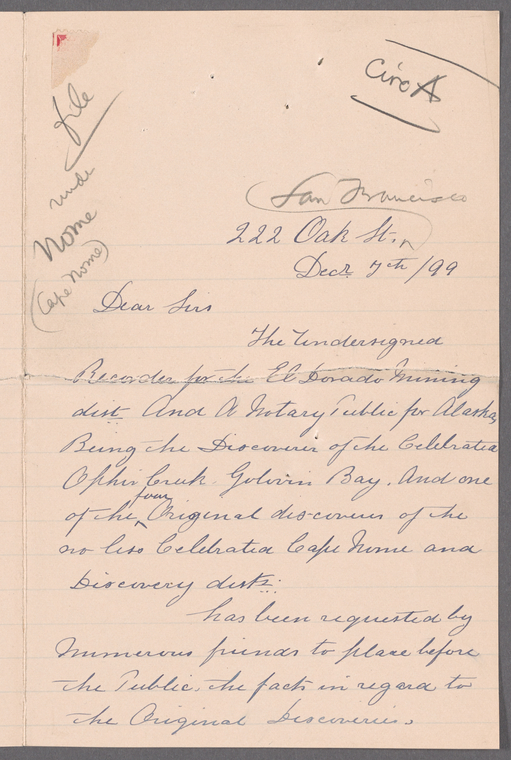 Circ A
file
under
Nome
(Cape Nome)
San Francisco
222 Oak St.,
Decr. 7th /99
Dear Sirs
The Undersigned
Recorder for the El Dorado Mining
dist. And A Notary Public for Alaska,
Being the Discoverer of the Celebrated
Ophir Creek. Golovin Bay. And one
of the four Original discoverers of the
no less Celebrated Cape Nome and
Discovery distr:
has been requested by
Numerous friends to place before
the Public, the facts in regard to
the Original Discoveries.